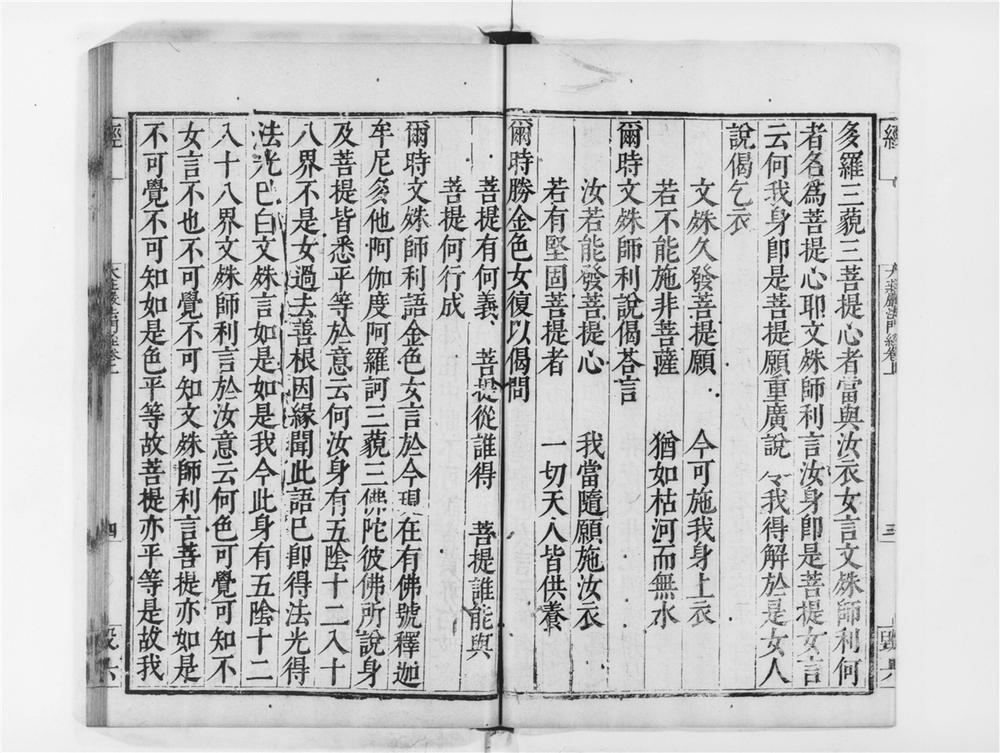 多羅三藐三菩提心者當與汝衣女言文殊師利何
者名爲菩提心耶文殊師利言汝身卽是菩提女言
云何我身卽是菩提願重廣說令我得解於是女人
說偈乞衣
文殊久發菩提願　今可施我身上衣
若不能施非菩薩　猶如枯河而無水
爾時文殊師利說偈荅言
汝若能發菩提心　我當隨願施汝衣
若有堅固菩提者　一切天人皆供養
爾時勝金色女復以偈問
菩提有何義　菩提從誰得　菩提誰能與
菩提何行成
爾時文殊師利語金色女言於今現在有佛號釋迦
牟尼多他阿伽度阿羅訶三藐三佛陀彼佛所說身
及菩提皆悉平等於意云何汝身有五陰十二入十
八界不是女過去善根因緣聞此語已卽得法光得
法光已白文殊言如是如是我今此身有五陰十二
入十八界文殊師利言於汝意云何色可覺可知不
女言不也不可覺不可知文殊師利言菩提亦如是
不可覺不可知如是色平等故菩提亦平等是故我
經
大莊嚴法門經卷上
三
經
大莊嚴法門經卷上
四